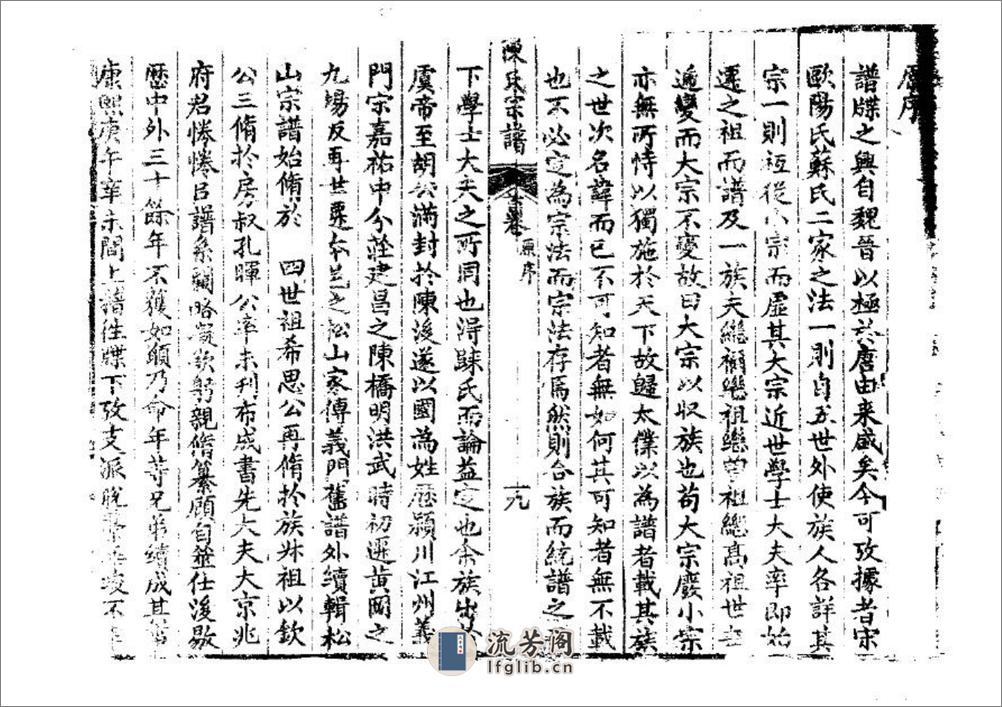 原序
譜牒之興自魏晉以極於唐由来盛矣今可攷據者宋
歐陽氏蘇氏二家之法一則自五世外使族人各詳其
宗一則秪從小宗而虛其大宗近世學士大夫率即始
遷之祖而譜及一族夫繼禰繼祖繼曾祖繼髙祖世
遞變而大宗不變故曰大宗以収族也苟大宗廢小宗
亦無所恃以獨施於天下故歸太僕以為譜者載其族
之世次名諱而已不可知者無如何其可知者無不載
也不必定為宗法而宗法存焉然則合族而統譜之
陳氏宗譜
卷
原序
十九
下學士大夫之所同也得蘇氏而論益定也余族出
虞帝至胡公滿封於陳後遂以國為姓歷潁川江州義
門宗嘉祐中分莊建昌之陳橋明洪武時初遷黄岡之
九塲及再世遷本邑之松山家傳義門舊譜外續輯松
山宗譜始脩於 四世祖希思公再脩於族叔祖以欽
公三脩於房叔孔暉公率未刋布成書先大夫大京兆
府君惓惓吕譜系闕略凝欲躬親脩纂顧自筮仕後敭
歷中外三十餘年不獲如願乃命年等兄弟續成其
康熙庚午辛未間上譜徃牒下攷支派